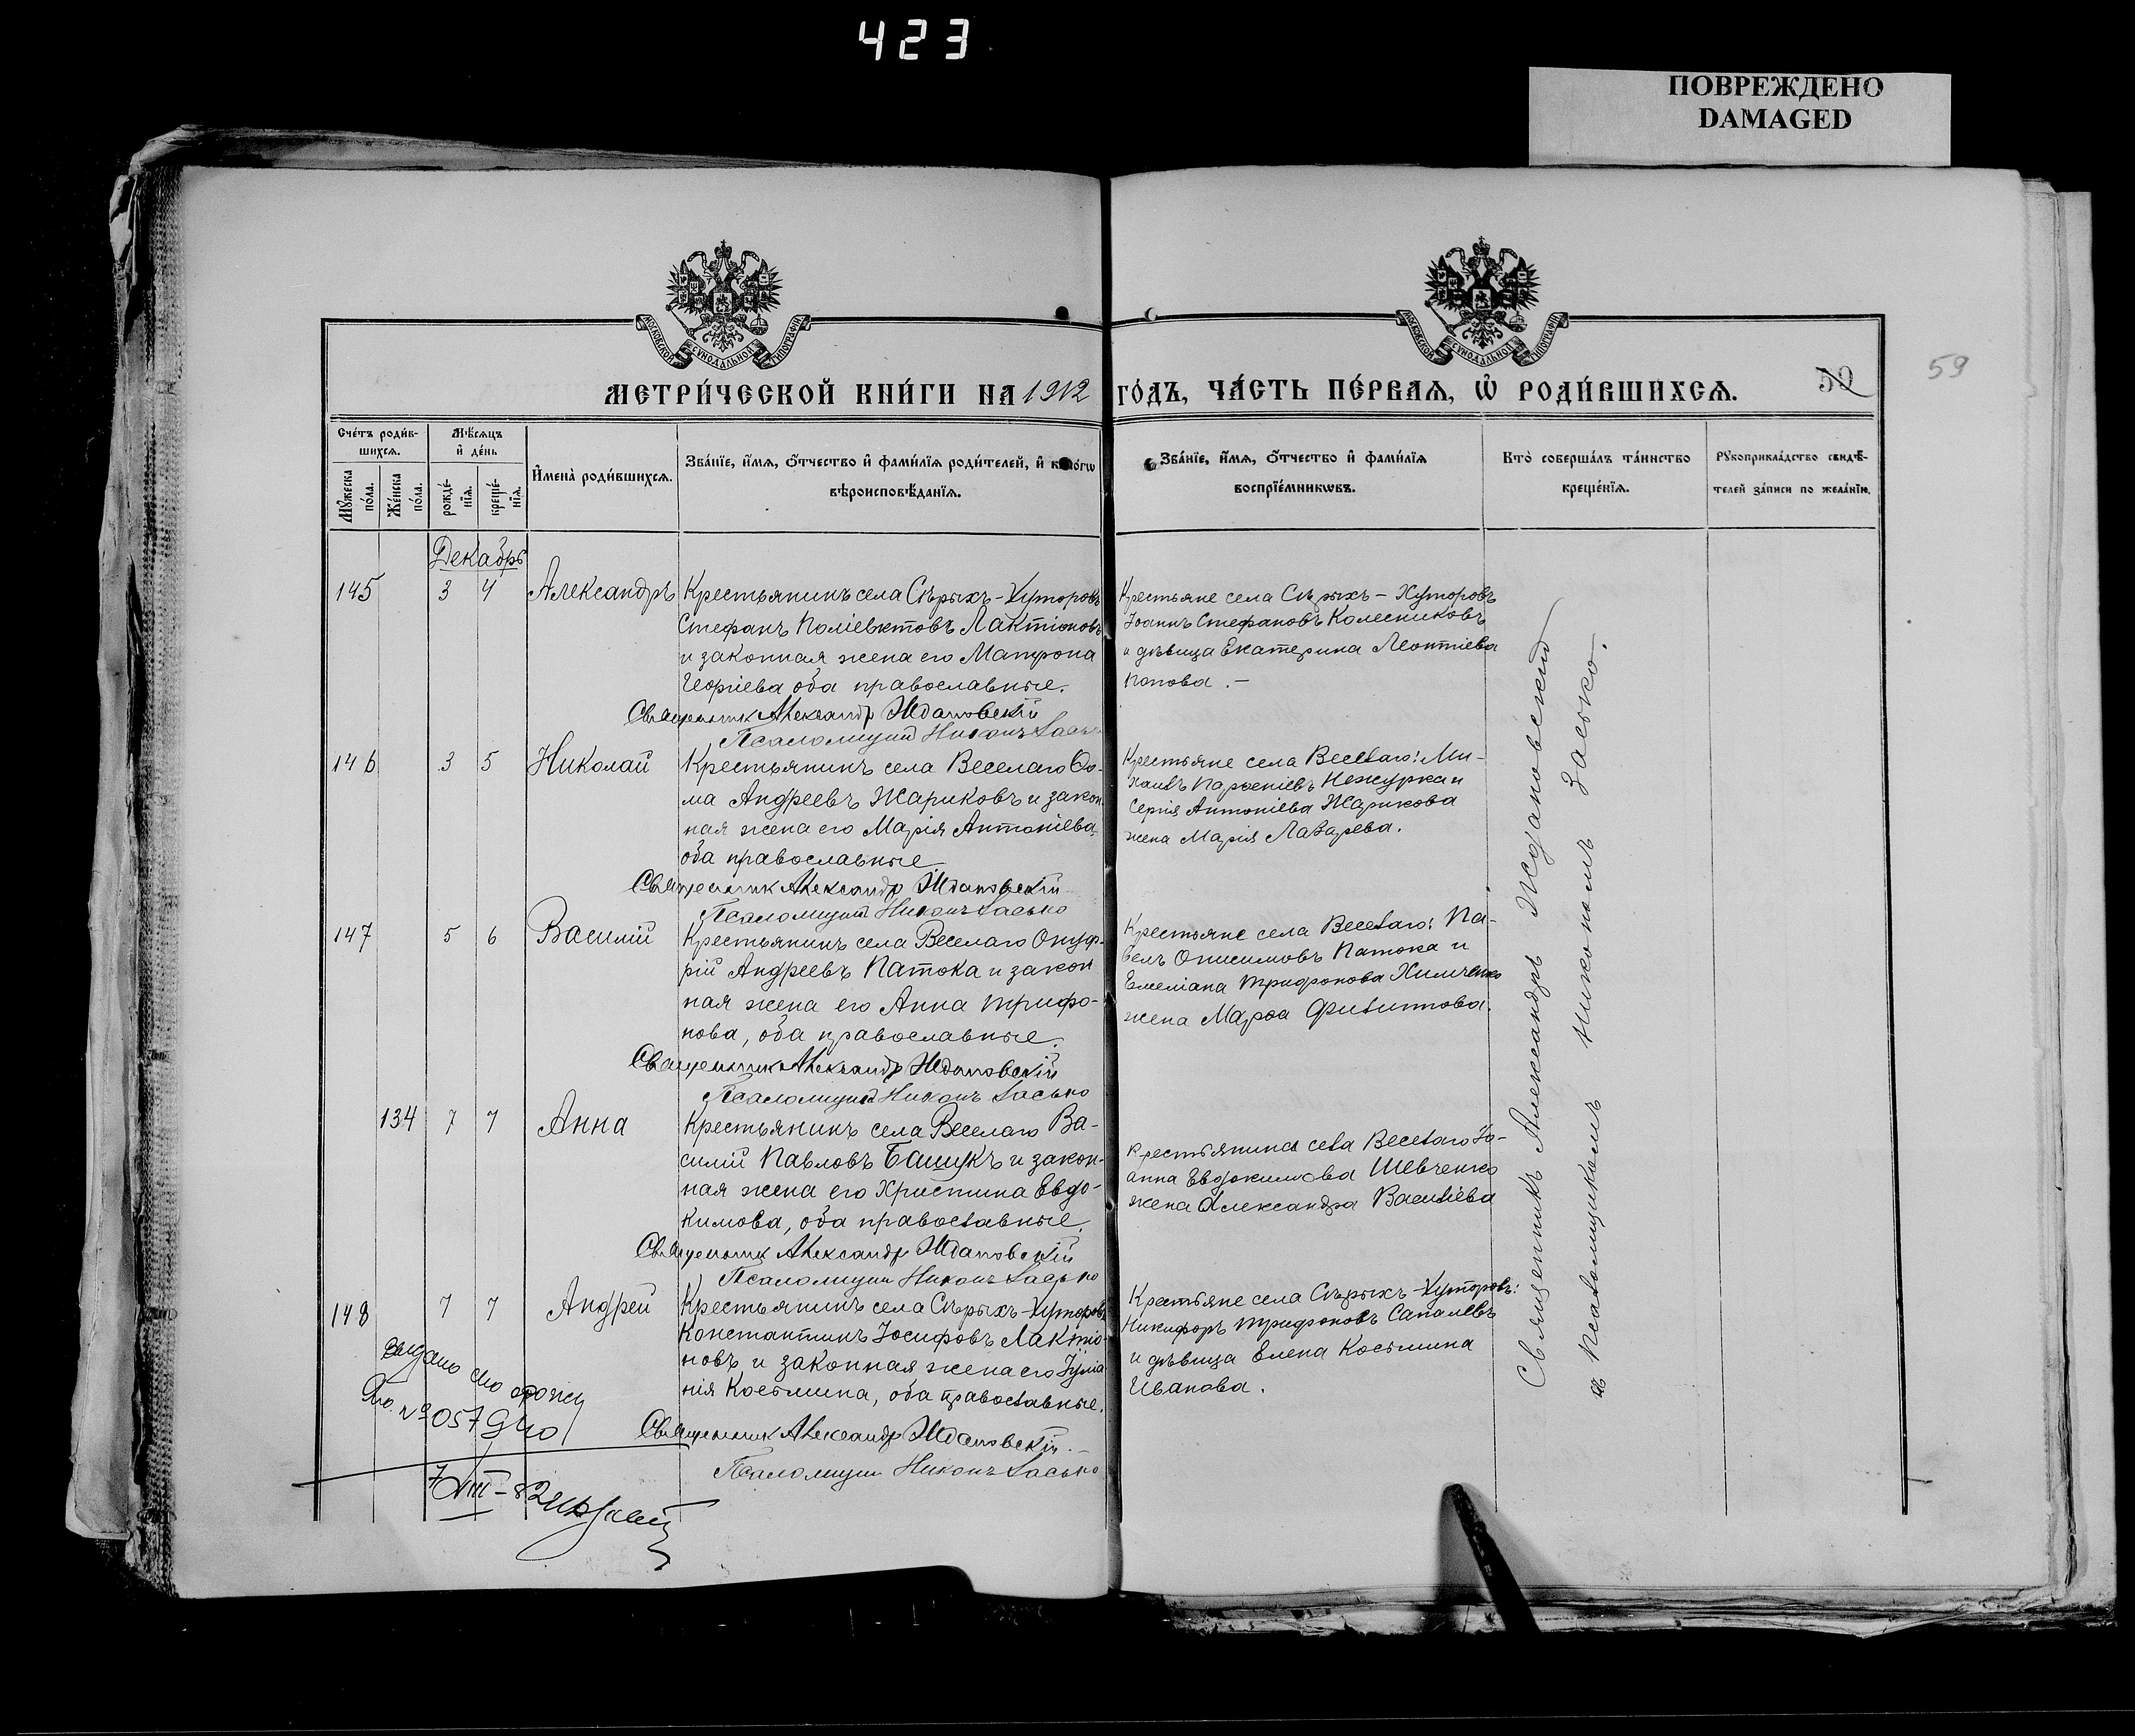 423
ПОВРЕЖДЕНО
DAMAGED
МОСКОВСКОЙ СѴНОДАЛЬНОЙ ТИПОГРАФІИ
МОСКОВСКОЙ СѴНОДАЛЬНОЙ ТИПОГРАФІИ
МЕТРИ́ЧЕСКОЙ КНИ́ГИ НА 1912 ГО́ДЪ, ЧА́СТЬ ПЕ́РВАЯ, Ѡ҆ РОДИ́ВШИХСЯ.
59
59
Сче́тъ роди́в-
шихся.
Мѣ́сяцъ
и҆ де́нь
Мꙋ́жеска
по́ла.
Же́нска
по́ла.
рожде́-
нїя.
креще́-
нїя.
И҆мена̀ роди́вшихся.
Зва́нїе, и҆́мя, ѻ҆́тчество и҆ фами́лїя роди́телей, и҆ како́гѡ
вѣроисповѣ́данїя.
Зва́нїе, и҆́мя, ѻ҆́тчество и҆ фами́лїя
воспрїе́мникѡвъ.
Кто̀ соверша́лъ та́инство
креще́нїя.
Рꙋкоприкла́дство свидѣ́-
телей за́писи по жела́нїю.
Декабрь
145 3 4 Александръ
Крестьянинъ села Сѣрыхъ-Хуторовъ
Стефанъ Поліевктовъ Лактіоновъ
и законная жена его Матрона
Георгіева оба православные.
Священник Александр Ждановский
Псаломщик Никонъ Засько
Крестьяне села Сѣрыхъ – Хуторовъ
Іоаннъ Стефановъ Колесниковъ
и дѣвица Екатерина Леонтіева
Попова. –
146 3 5 Николай
Крестьянинъ села Веселаго Ѳо-
ма Андреевъ Жариковъ и закон-
ная жена его Марія Антоніева,
оба православные
Священник Александр Ждановскій
Псаломщик Никонъ Засько
Крестьяне села Веселаго: Ми-
хаилъ Парѳеніевъ Нежурка и
Сергія Антоніева Жарикова
жена Марія Лазарева.
147 5 6 Василій
Крестьянинъ села Веселаго Онуф-
рій Андреевъ Патока и закон
ная жена его Анна Трифо-
нова, оба православные.
Священник Александр Ждановскій
Псаломщик Никонъ Засько
Крестьяне села Веселаго: Па-
велъ Онисимовъ Патока и
Емеліана Трифонова Химченко
жена Марѳа Филиппова.
134 7 7 Анна
Крестьянинъ села Веселаго Ва-
силій Павловъ Башукъ и закон-
ная жена его Христина Евдо-
кимова, оба православные.
Священник Александр Ждановскій
Псаломщик Никонъ Засько
Крестьянина села Веселаго Іо-
анна Евдокимова Шевченко
жена Александра Васильева
148 7 7 Андрей
Крестьянинъ села Сѣрыхъ-Хуторовъ
Константинъ Іосифовъ Лактіо-
новъ и законная жена его Іуліа
нія Косьмина, оба православные.
Священник Александр Ждановскій. –
Псаломщик Никонъ Засько
Крестьяне села Сѣрыхъ-Хуторовъ:
Никифоръ Трифоновъ Сапалевъ
и дѣвица Елена Косьмина
Иванова.
выдано
№ 057940
Священникъ Александръ Ждановскій
съ псаломщикомъ Никономъ Засько.